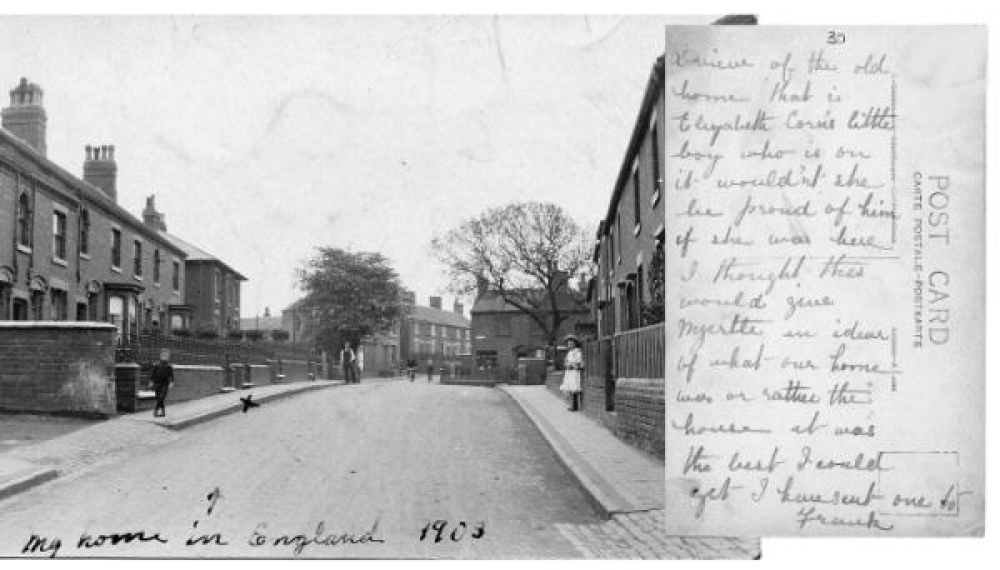 My home in England 1903
30
of the old
home That is
Elizabeth Corn's little
boy who is on
it wouldn't she
be proud of him
if she was here
I thought this
would give
Myrtle an idear
of what our home
was or rather the
house it was
the best I could
get I have sent one to
Frank
POST CARD
CARTE POSTALE-POSTKARTE